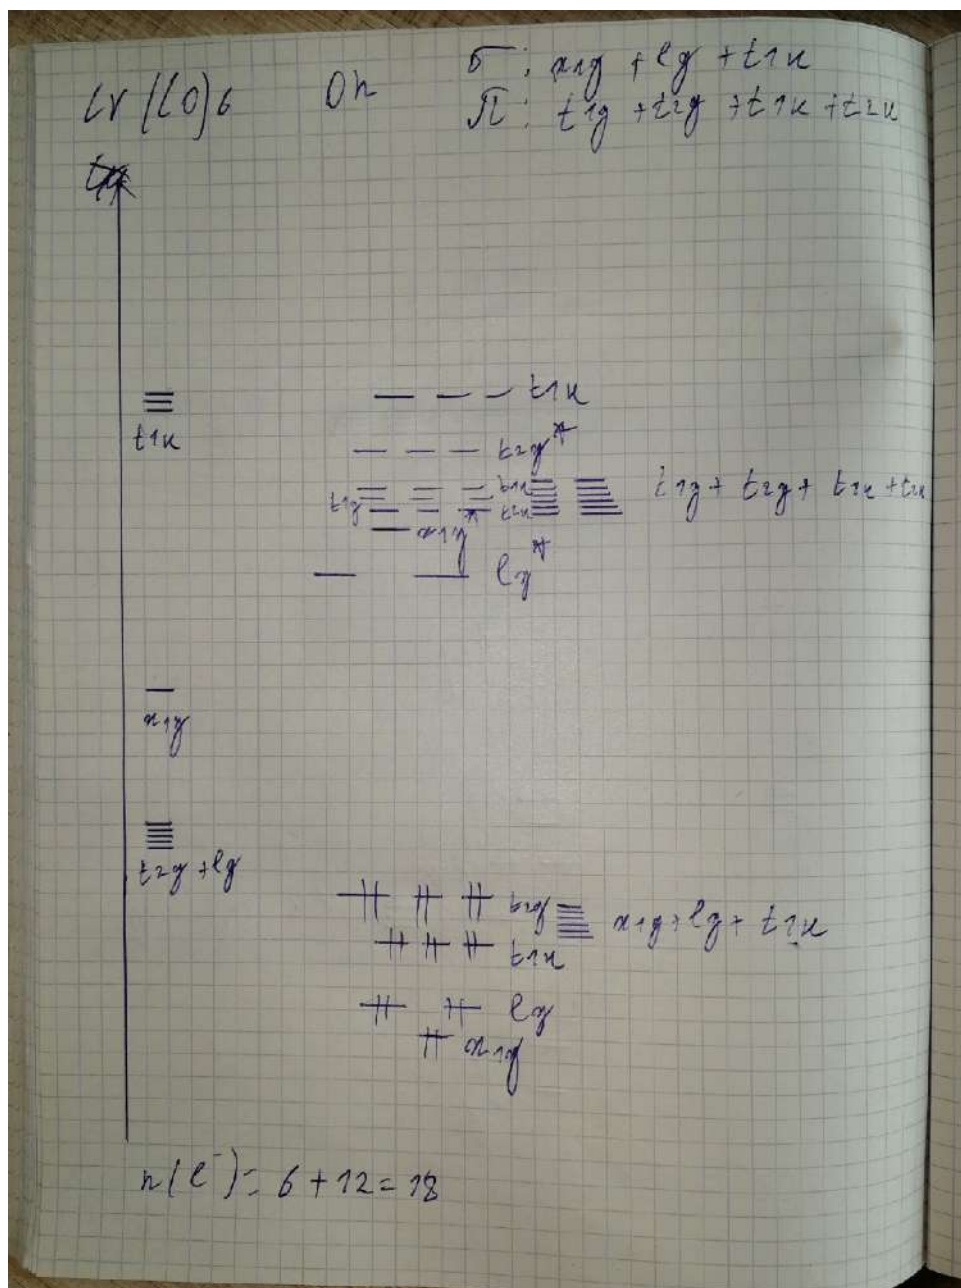 Cr(CO)6 Oh
σ: a1g + eg + t1u
π: t1g + t2g + t1u + t2u
t1u
t1u
t2g*
t1u
t1g
t2u
t1g + t2g + t1u + t2u
a1g*
eg*
a1g
t2g + eg
t2g
a1g + eg + t1u
t1u
eg
a1g
n(e⁻) = 6 + 12 = 18